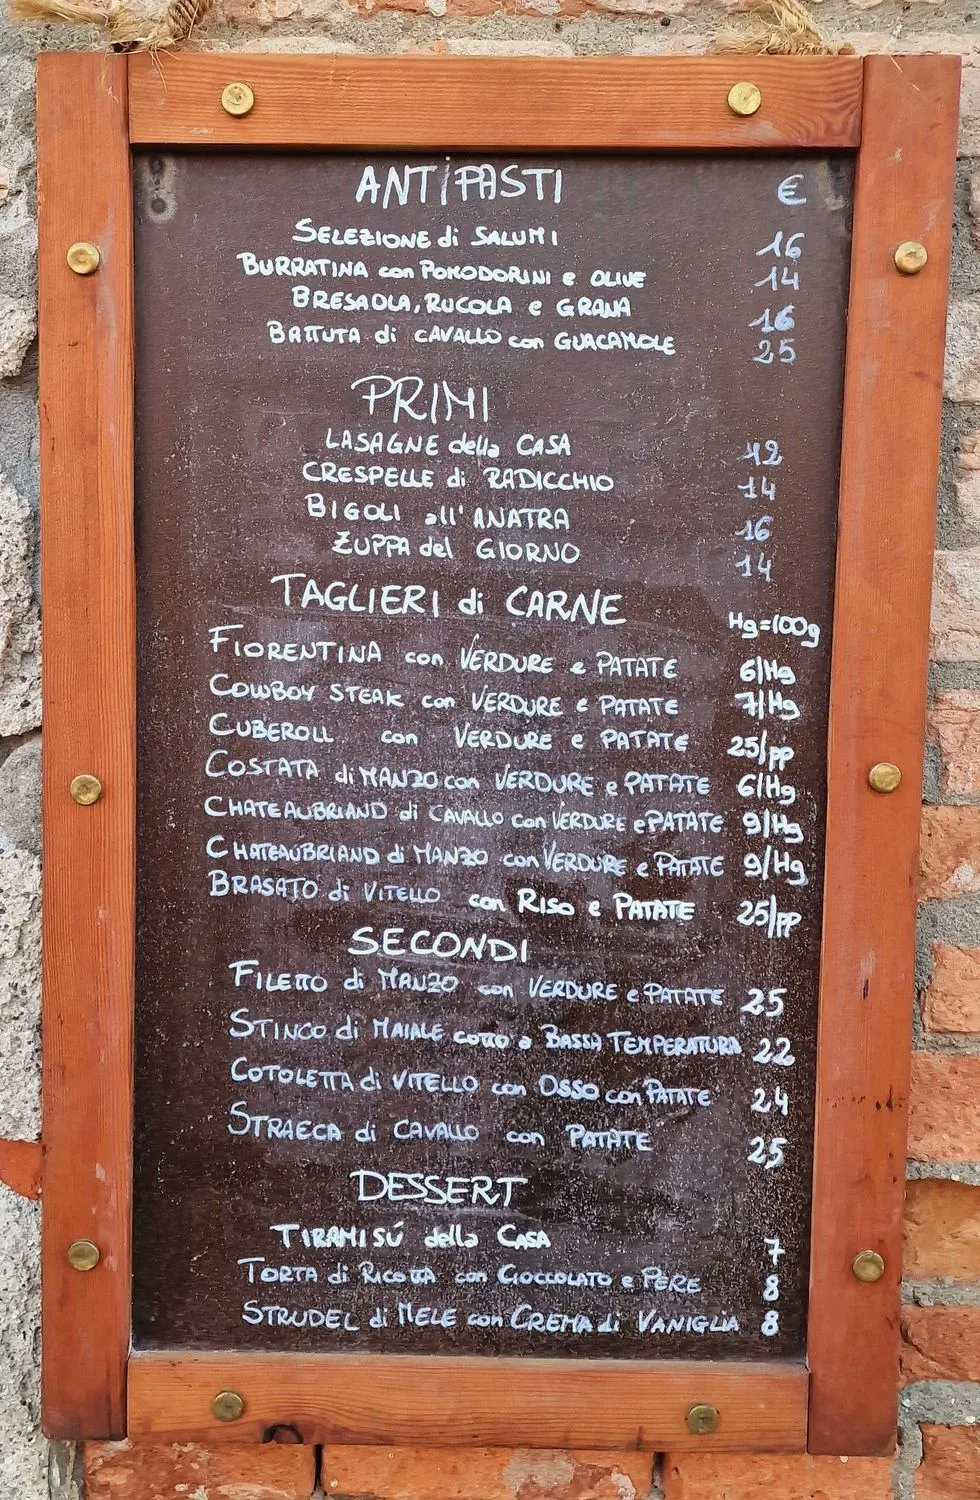 ANTIPASTI €
SELEZIONE di SALUMI 16
BURRATINA con POMODORINI e OLIVE 14
BRESAOLA, RUCOLA e GRANA 16
BATTUTA di CAVALLO con GUACAMOLE 25
PRIMI
LASAGNE della CASA 12
CRESPELLE di RADICCHIO 14
BIGOLI all'ANATRA 16
ZUPPA del GIORNO 14
TAGLIERI di CARNE Hg=100g
FIORENTINA con VERDURE e PATATE 6/Hg
COWBOY STEAK con VERDURE e PATATE 7/Hg
CUBEROLL con VERDURE e PATATE 25/pp
COSTATA di MANZO con VERDURE e PATATE 6/Hg
CHATEAUBRIAND di CAVALLO con VERDURE e PATATE 9/Hg
CHATEAUBRIAND di MANZO con VERDURE e PATATE 9/Hg
BRASATO di VITELLO con RISO e PATATE 25/PP
SECONDI
FILETTO di MANZO con VERDURE e PATATE 25
STINCO di MAIALE cotto a BASSA TEMPERATURA 22
COTOLETTA di VITELLO con OSSO con PATATE 24
STRAECA di CAVALLO con PATATE 25
DESSERT
TIRAMISÚ della CASA 7
TORTA di RICOTTA con CIOCCOLATO e PERE 8
STRUDEL di MELE con CREMA di VANIGLIA 8